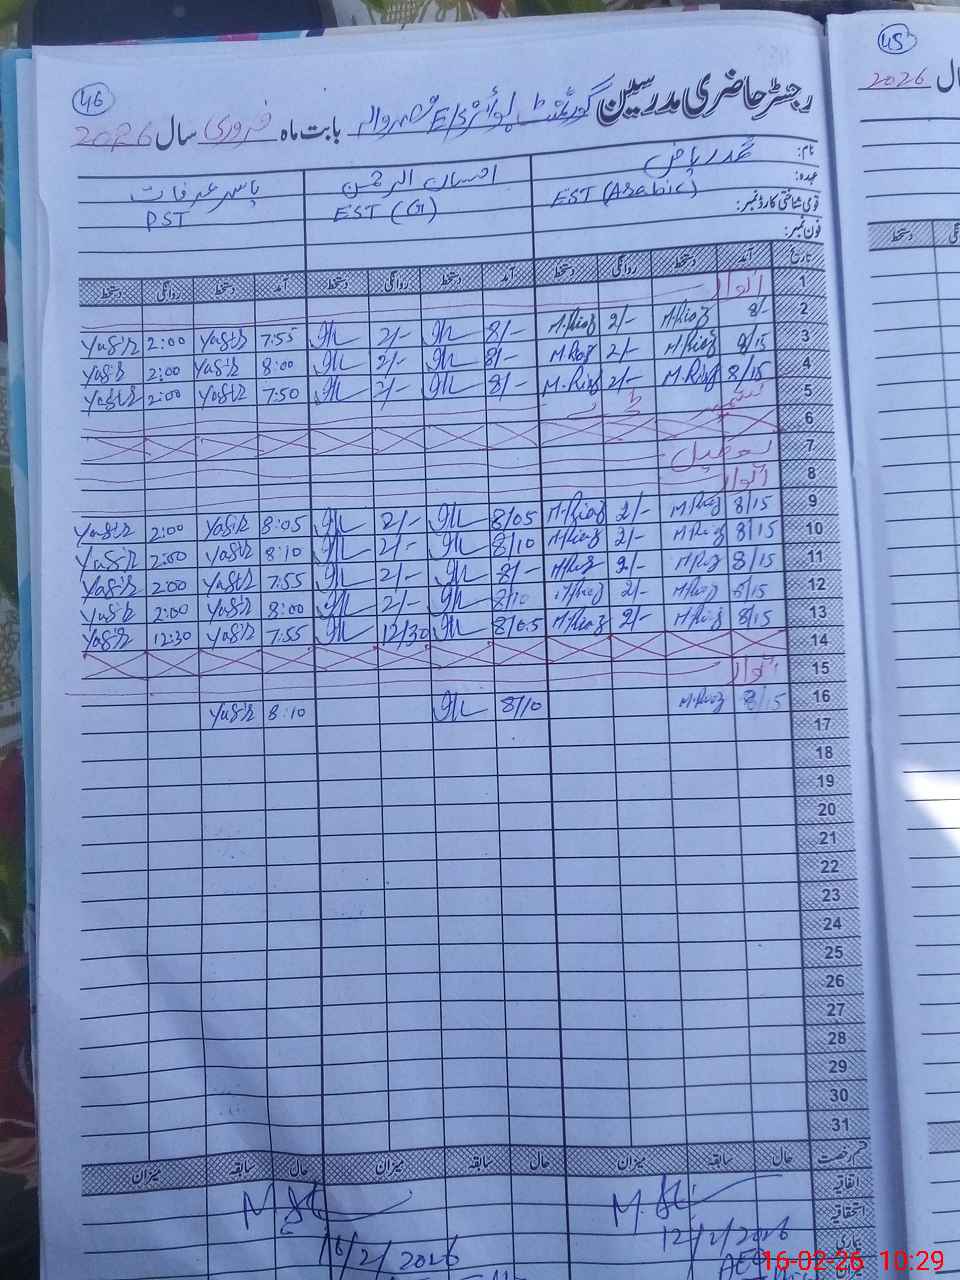 46
رجسٹر حاضری مدرسین گورنمنٹ بوائز E/S بابت ماہ فروری سال 2026
نام: محمد ریاض احسان الرحمن یاسر عرفات
عہدہ: EST (Arabic) EST (G) PST
قومی شناختی کارڈ نمبر:
فون نمبر:
تاریخ آمد دستخط روانگی دستخط آمد دستخط روانگی دستخط آمد دستخط روانگی دستخط
1 اتوار
2 8/- M.Riaz 2/- M.Riaz 8/- 2/- 7:55 Yasir 2:00 Yasir
3 8/15 M.Riaz 2/- M.Riaz 8/- 2/- 8:00 Yasir 2:00 Yasir
4 8/15 M.Riaz 2/- M.Riaz 8/- 2/- 7:50 Yasir 2:00 Yasir
5 کشمیر ڈے
6
7 تعطیل
8 اتوار
9 8/15 M.Riaz 2/- M.Riaz 8/05 2/- 8:05 Yasir 2:00 Yasir
10 8/15 M.Riaz 2/- M.Riaz 8/10 2/- 8:10 Yasir 2:00 Yasir
11 8/15 M.Riaz 2/- M.Riaz 8/- 2/- 7:55 Yasir 2:00 Yasir
12 8/15 M.Riaz 2/- M.Riaz 8/10 2/- 8:00 Yasir 2:00 Yasir
13 8/15 M.Riaz 2/- M.Riaz 8/05 12/30 7:55 Yasir 12:30 Yasir
14
15 اتوار
16 8/15 M.Riaz 8/10 8:10 Yasir
17
18
19
20
21
22
23
24
25
26
27
28
29
30
31
قسم رخصت حال سابقہ میزان حال سابقہ میزان حال سابقہ میزان
اتفاقیہ
استحقاقیہ
بیماری
12/2/2026
16/2/2026
AEO
45
سال 2026
دستخط
16-02-26 10:29